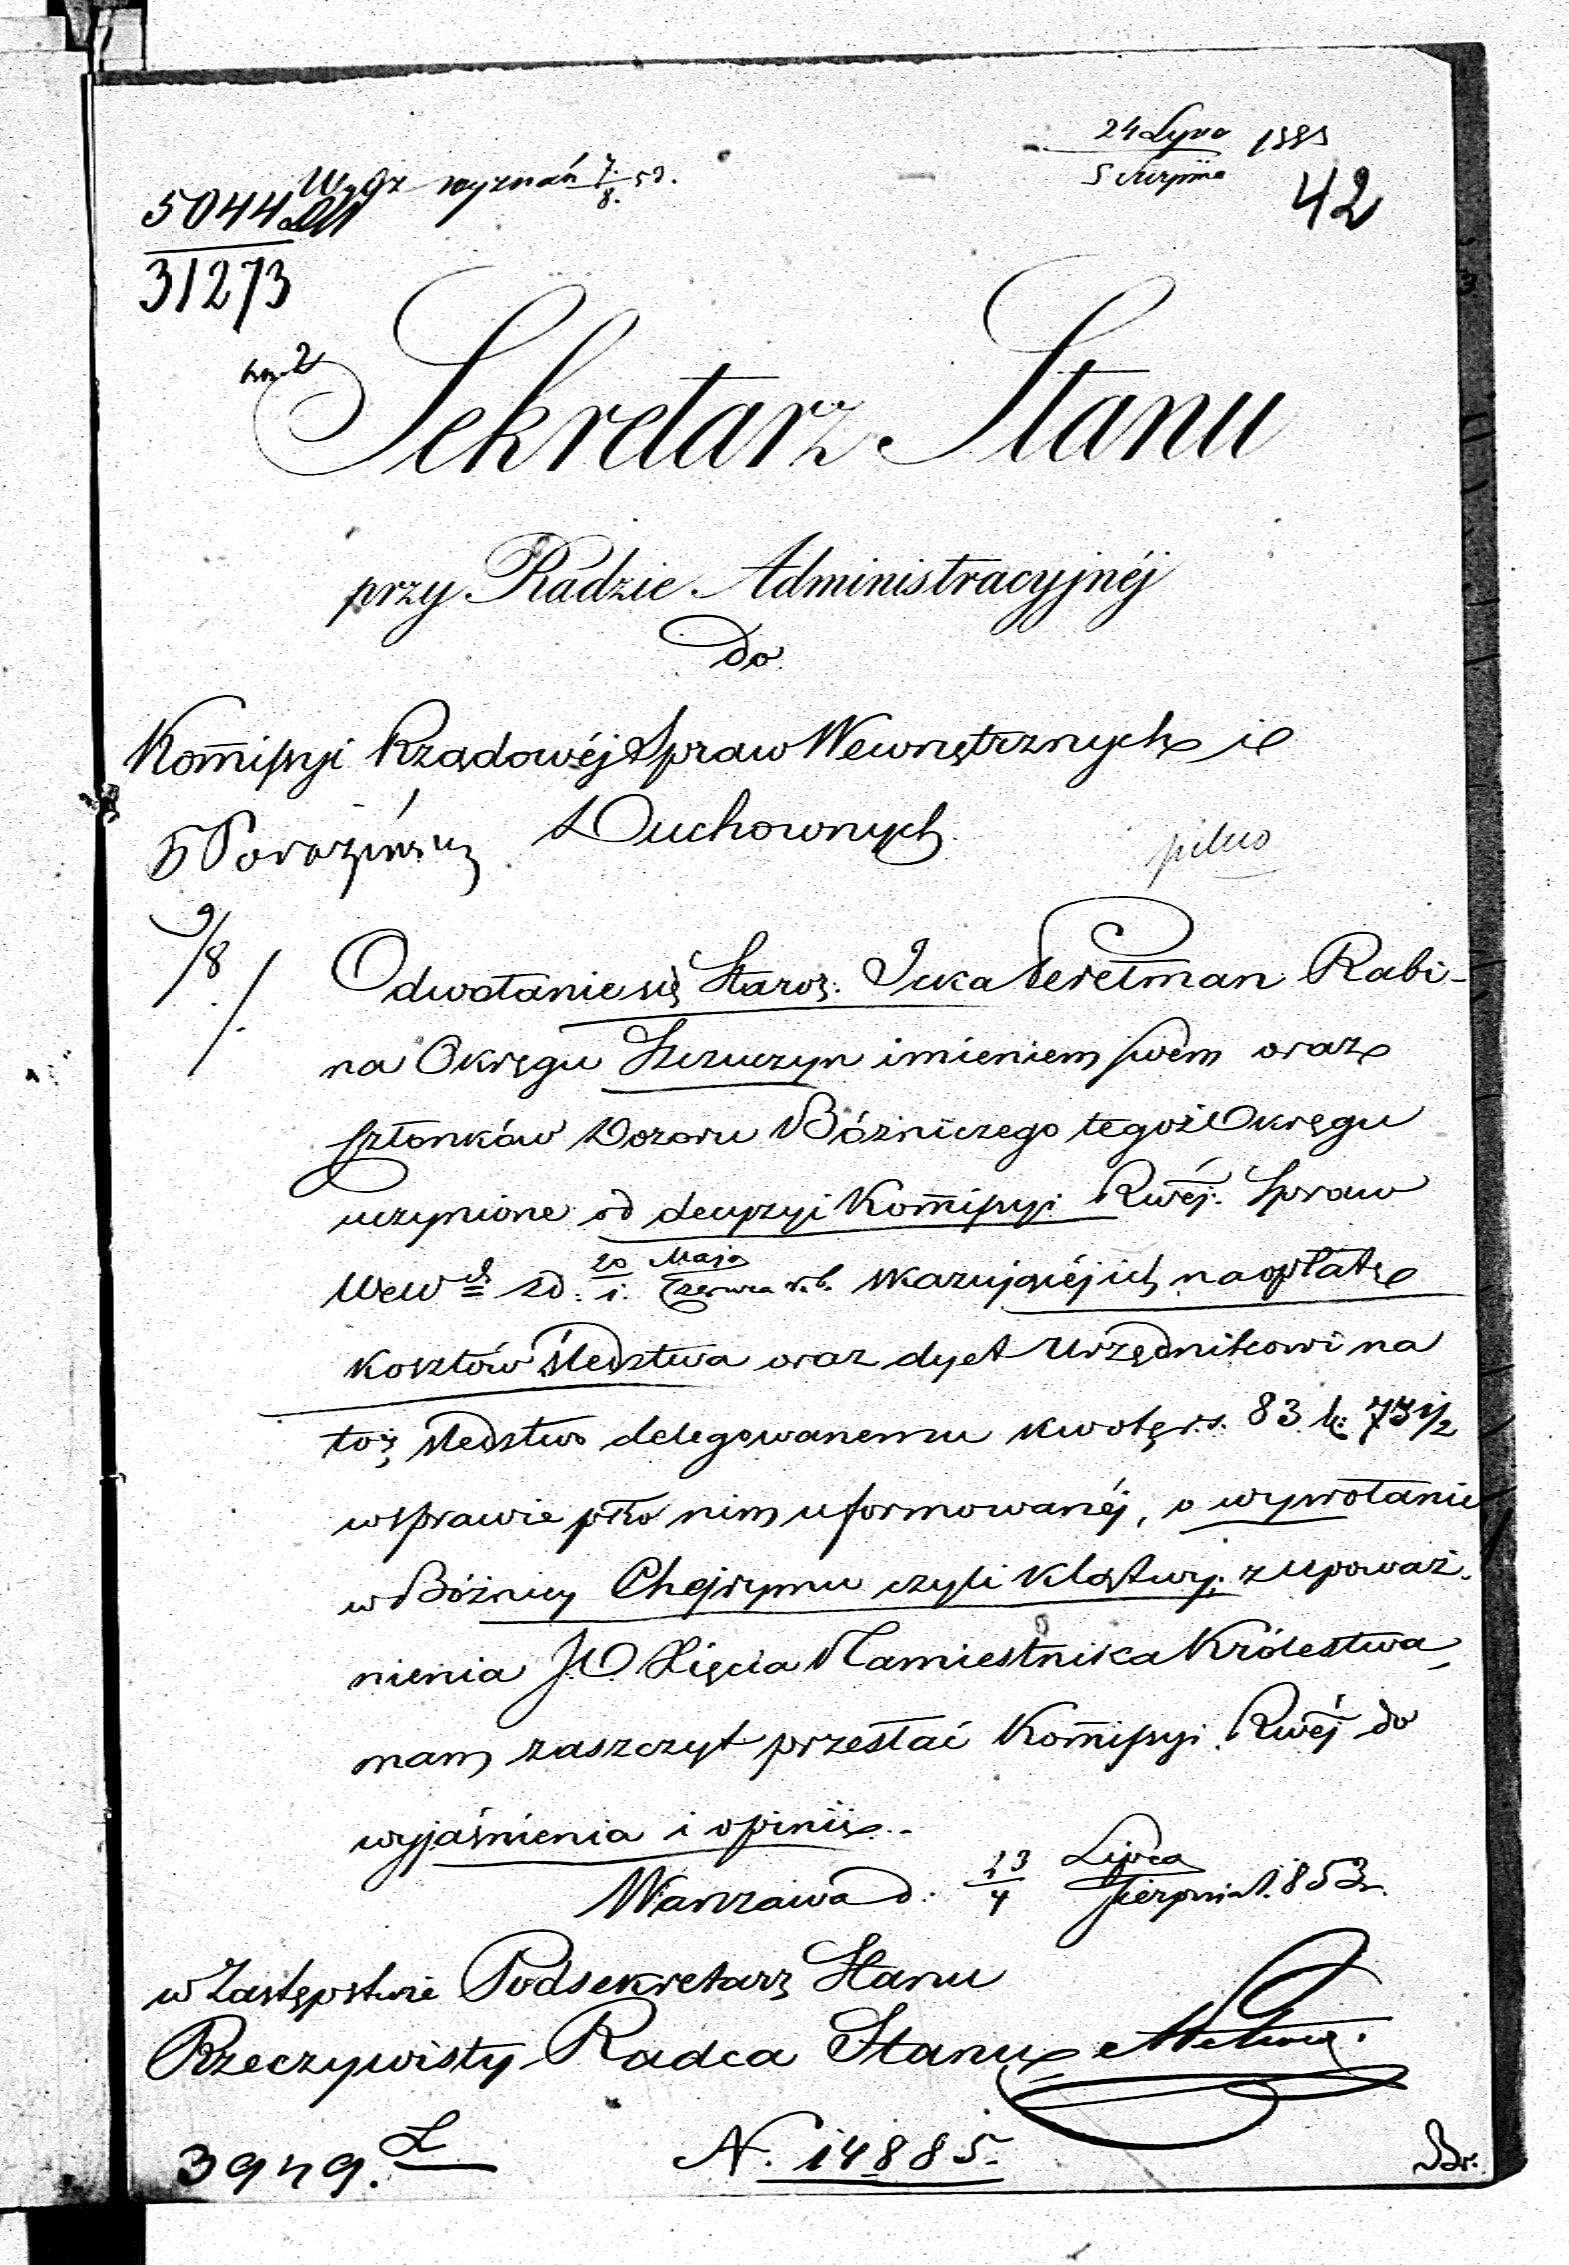 24 Lipca 1853
5 Sierpnia
42
wyznań 7/8 53.
5044
31273
Sekretarz Stanu
przy Radzie Administracyjnéj
do
Kommissyi Rządowéj Spraw Wewnętrznych i
Duchownych
pilno
9/8
Odwołanie się Staroz: Icka Perelman Rabi-
na Okręgu Szczuczyn imieniem swem oraz
członków Dozoru Bóżniczego tegoż Okręgu
uczynione od decyzyi Kommissyi Rwéj: Spraw
Wewch z d: 20 Maja
1. Czerwca r.b. skazującéj ich na opłatę
kosztów śledztwa oraz dyet Urzędnikowi na
toż śledztwo delegowanemu kwotę rs. 83 k: 73 1/2
w sprawie pko nim uformowanéj, o wywołanie
w Bóżnicy Chejrymu czyli Klątwy; z upoważ-
nienia JO Xięcia Namiestnika Królestwa,
mam zaszczyt przesłać Kommissyi Rwéj do
wyjaśnienia i opinii.
Warszawa d: 23 Lipca
4 Sierpnia 1853 r.
w Zastępstwie Podsekretarz Stanu
Rzeczywisty Radca Stanu
3949.
N. 14885.
Br.